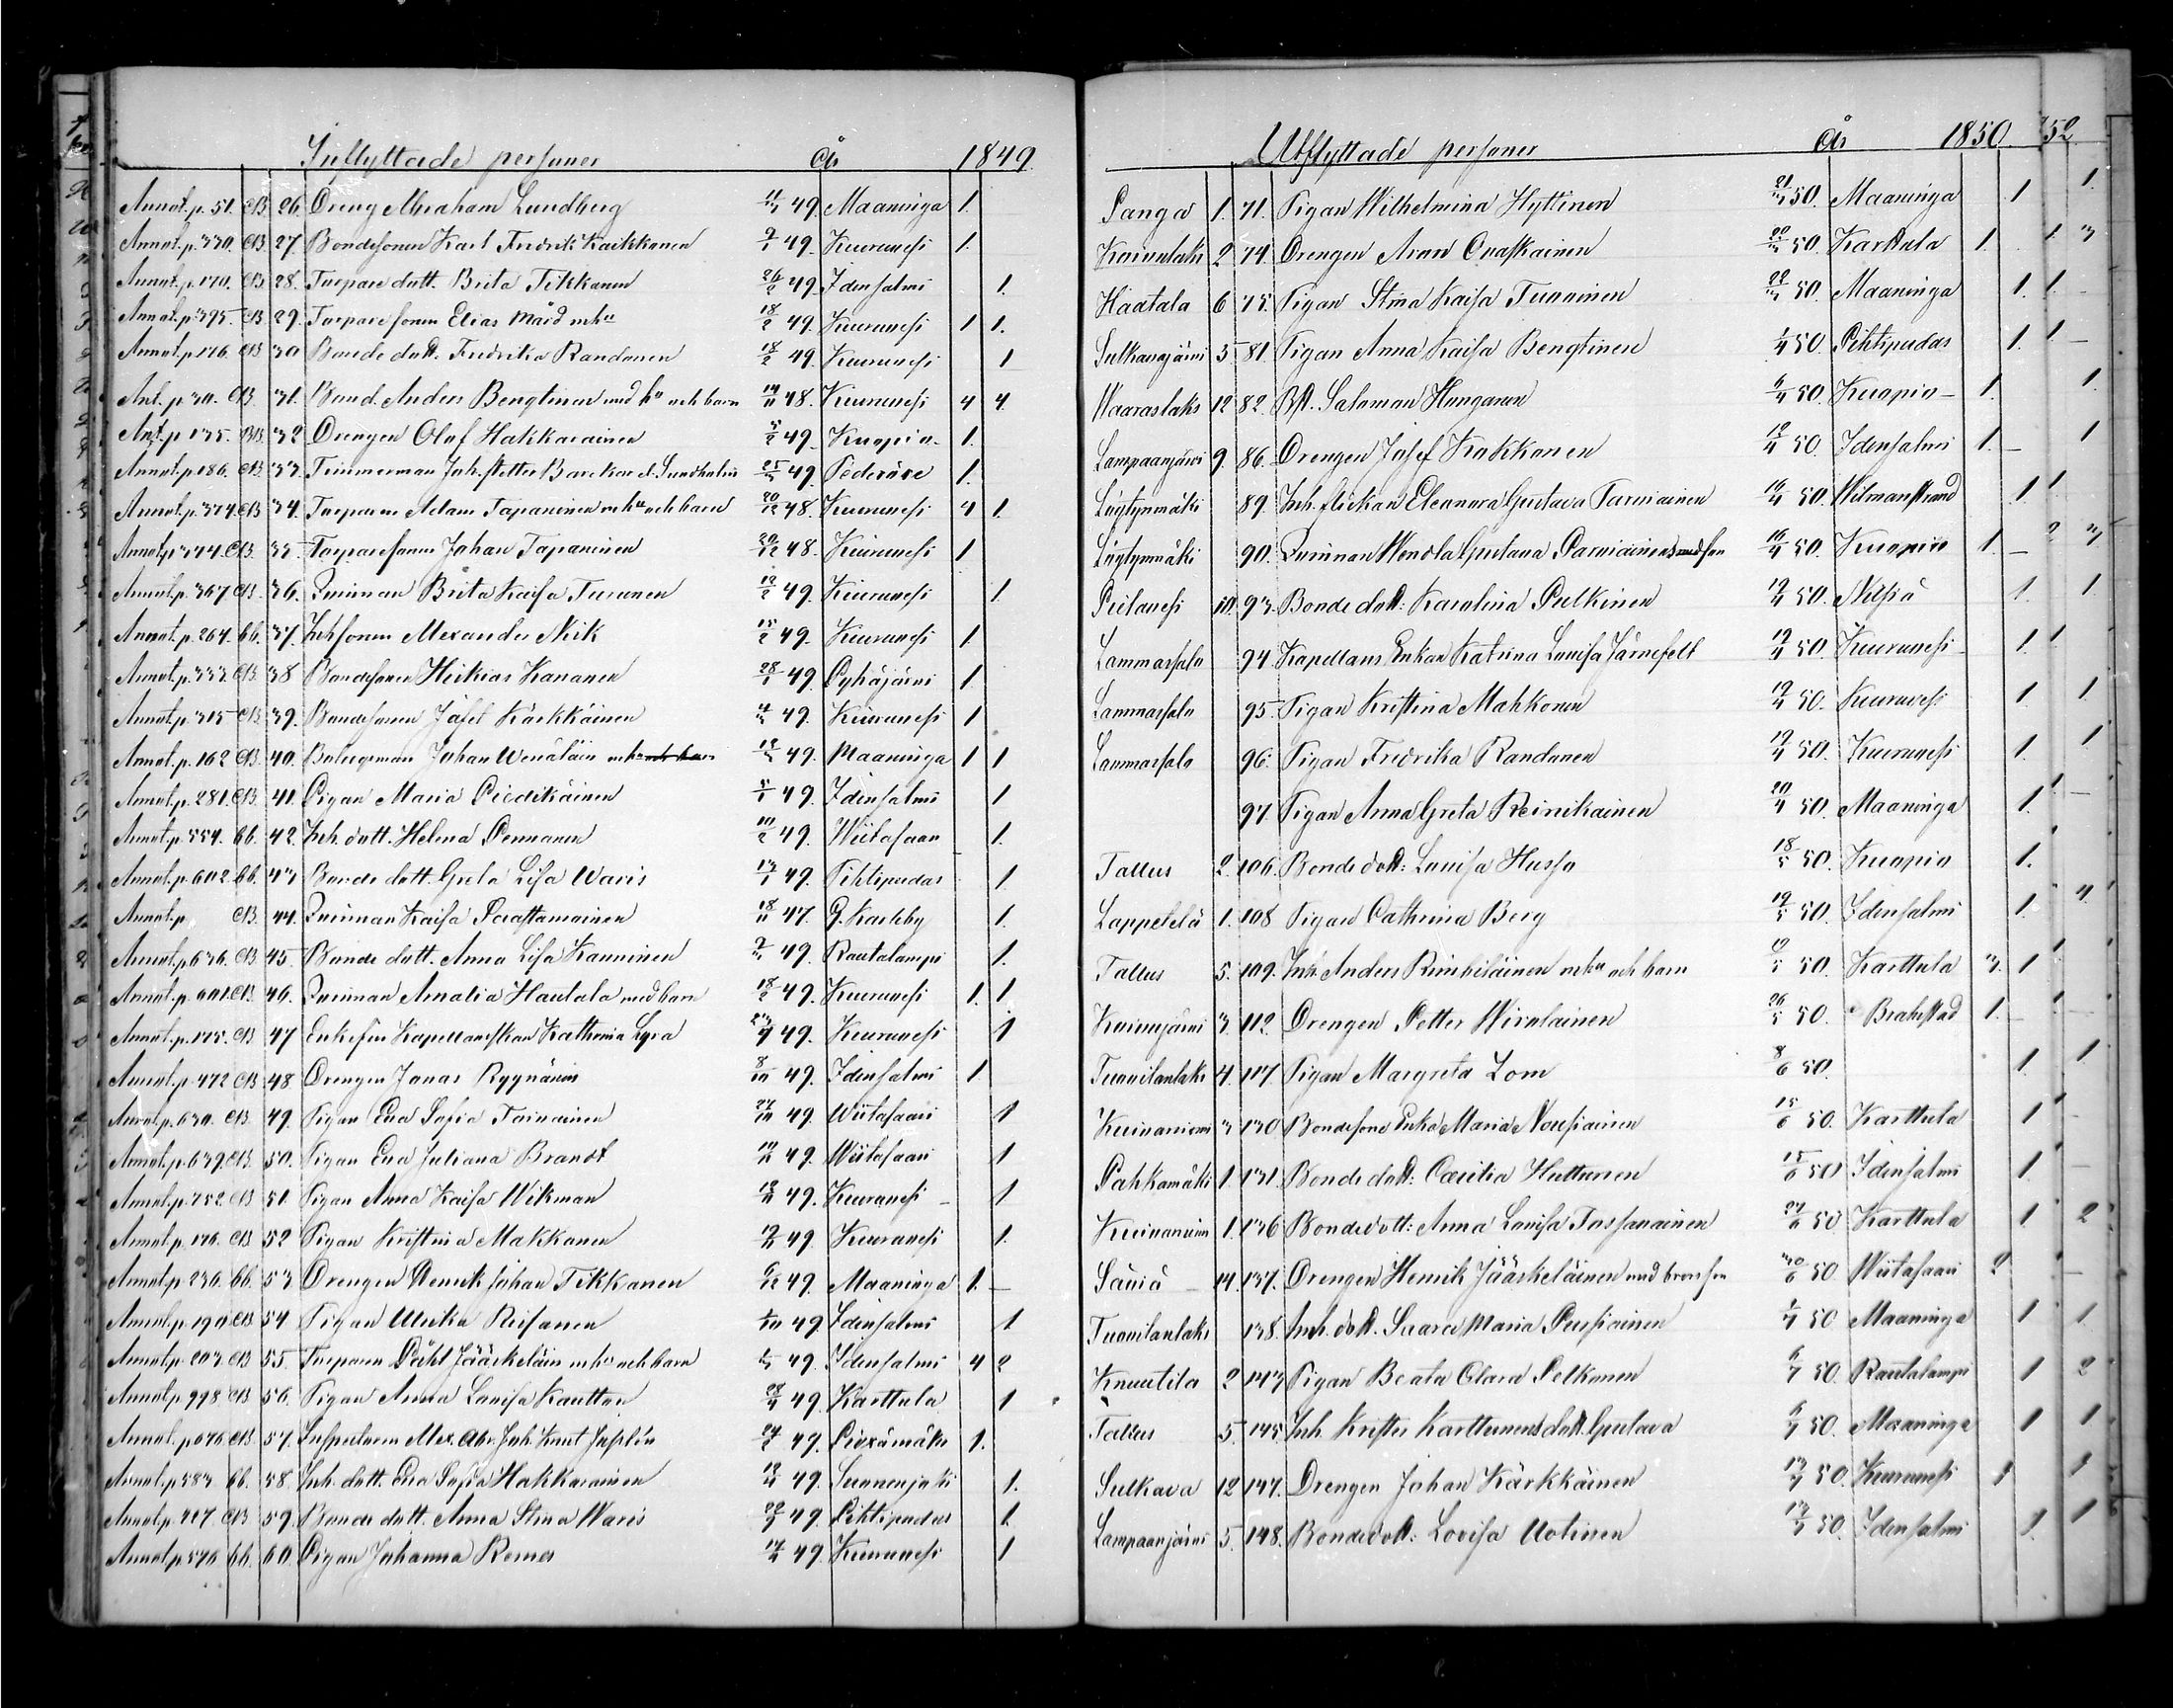 Inflyttade personer År 1849.
Annot. p. 51. CB. 26. Dreng Abraham Lundberg 49. Maaninga 1.
Annot. p. 330. CB 27. Bondesonen Karl Fredrik Kaikkonen 2/1 49. Kiuruvesi 1.
Annot. p. 170. CB. 28. Torpare dott. Brita Tikkanen 26/2 49. Idensalmi 1.
Annot. p. 395. CB 29. Torparesonen Elias Måid m hu 18/2 49. Kiuruvesi 1 1.
Annot. p. 176. CB 30 Bonde dott. Fredrika Randanen 18/2 49. Kiuruvesi 1
Ant. p. 30. CB. 31. Bond. Anders Bengtinen med hu och barn 14/11 48. Kiuruvesi 4 4.
Ant. p. 135. 32 Drengen Olof Hakkarainen 5/2 49. Kuopio 1.
Annot. p. 186. CB 33. Timmerman Joh. Petter d. Sundholm 49. Pedersöre 1.
Annot. p. 374. CB 34. Torparen Adam Tapaninen m hu och barn 20/12 48. Kiuruvesi 4 1.
Annot. p. 374. CB. 35. Torparesonen Johan Tapaninen 20/12 48. Kiuruvesi 1
Annot. p. 367 CB. 36. Qvinnan Brita Kaisa Turunen 12/2 49. Kiuruvesi 1.
Annot. p. 264. bb. 37. Inh sonen Alexander Niik 15/2 49. Kiuruvesi 1
Annot. p. 333. CB. 38 Bondesonen Heikias Kananen 28/1 49. Pyhäjärvi 1.
Annot. p. 315 CB. 39. Bondesonen Josef Kärkkäinen 49. Kiuruvesi 1
Annot. p. 162 CB. 40. Johan Wenäläin m hu 49. Maaninga 1 1
Annot. p. 281. CB. 41. Pigan Maria Piedikäinen 49. Idensalmi 1
Annot. p. 554. bb. 42. Inh. dott. Helena Pennanen 10/2 49. Wiitasaari 1.
Annot. p. 602. bb. 43 Bonde dott. Greta Lisa Waris 49. Pihtipudas 1
Annot. p CB. 44. Qvinnan Kaisa 18/11 47. G. Karleby 1.
Annot. p. 636. CB 45. Bonde dott. Anna Lisa Kauninen 49. Rautalampi 1.
Annot. p. 601. CB. 46. Qvinnan Amalia Hautala med barn 18/2 49. Kiuruvesi 1. 1
Annot. p. 175. CB 47 Enkefru Kapellanskan Katharina Lyra 23/4 49. Kiuruvesi 1
Annot. p. 472 CB 48 Drengen Jonas Ryynänen 8/10 49. Idensalmi 1
Annot. p. 630. CB. 49. Pigan Eva Sofia Toivainen 27/10 49. Wiitasaari 1
Annot. p. 639. CB. 50. Pigan Eva Juliana Brandt 49. Wiitasaari 1
Annot. p. 752. CB 51. Pigan Anna Kaisa Wikman 49. Kiuruvesi 1
Annot. p. 176. CB 52 Pigan Kristina Makkonen 49. Kiuruvesi 1.
Annot. p. 236. bb. 53 Drengen Henrik Johan Tikkanen 6/12 49. Maaninga 1.
Annot. p. 190. CB 54. Pigan Ulrika Reisanen 49. Idensalmi 1
Annot. p. 203. CB 55. Torparen Påhl Jääskeläin m hu och barn 49. Idensalmi 4 2
Annot. p. 998. CB 56. Pigan Anna Lovisa Kautton 28/4 49. Karttula 1
Annot. p. 676. CB. 57. Alex. Abr. Joh. Knut 49. Piexämäki 1.
Annot. p. 583. bb. 58. Inh. dott. Eva Sofia Hakkarainen 49. Suonenjoki 1.
Annot. p. 427. CB 59. Bonde dott. Anna Stina Waris 49. Pihtipudas 1
Annot. p. 576 bb. 60. Pigan Johanna Romer 49. Kiuruvesi 1
Utflyttade personer År 1850. 52
Panga 1. 71. Pigan Wilhelmina Hyttinen 21/3 50. Maaninga 1 1.
Koivulaks 2 74. Drengen Aron 50. Karttula 1. 1 3
Haatala 6 75. Pigan Stina Kaisa Tuovinen 22/3 50. Maaninga 1. 1
Sulkavajärvi 5 81. Pigan Anna Kaisa Bengtinen 1/4 50. Pihtipudas 1. 1
Waaraslaks 12 82. Bd. Saloman Hunganen 6/4 50. Kuopio 1. 1
Lampaanjärvi 9. 86. Drengen Josef Kokkonen 12/4 50. Idensalmi 1. 1
Löytynmäki 89. Inh. flickan Eleonora Gustava Parviainen 16/4 50. Wilmanstrand 1 1
Löytynmäki 90. Qvinnan Wendla Gustava Parviainen med son 16/4 50. Kuopio 1. 2 3
Peilanesi 10. 93. Bonde dott: Karolina Pulkinen 19/4 50. Nilsiä 1. 1
Lammassalo 94. Kapellans Enkan Katrina Lovisa Järnefelt 19/4 50. Kiuruvesi 1. 1
Lammassalo 95. Pigan Kristina Mahkonen 19/4 50. Kiuruvesi 1 1
Lammassalo 96. Pigan Fredrika Randanen 19/4 50. Kiuruvesi 1. 1
97. Pigan Anna Greta Reinikainen 20/4 50. Maaninga 1. 1
Tallus 2. 106. Bonde dott: Lovisa Husso 18/5 50. Kuopio 1.
Lappetelä 1. 108 Pigan Cathrina Berg 19/5 50. Idensalmi 1. 4
Tallus 5. 109. Inh. Anders Rimbiläinen m hu och barn 50. Karttula 3. 1 1
3. 112. Drengen Petter Wirolainen 26/5 50. Brahestad 1. 1
Tuovilanlaks 4. 117. Pigan Margreta Lom 8/6 50. 1 1
Kuivaniemi 3 130 Bondesons Enka Maria Nousiainen 15/6 50. Karttula 1 1
Pahkamäki 1. 131. Bonde dott: Cæcilia Huttunen 15/6 50 Idensalmi 1
1. 136 Bondedott: Anna Lovisa Tossavainen 27/6 50 Karttula 1 2
Säviä 14. 137. Drengen Henrik Jääskeläinen med brorson 30/6 50 Wiitasaari 2
Tuovilanlaks 138. Inh. dott. Maria Pursiainen 50 Maaninga 1 1
Knuutila 2 143 Pigan Beata Clara Pelkonen 6/7 50. Rautalampi 1 2
Tallus 5. 145. Inh. Krister Karttunens dott. Gustava 6/7 50. Maaninga 1 1
Sulkava 12 147. Drengen Johan Kärkkäinen 13/7 50. Kiuruvesi 1 1
Lampaanjärvi 5. 148. Bondedott: Lovisa Uotinen 13/7 50. Idensalmi 1. 1